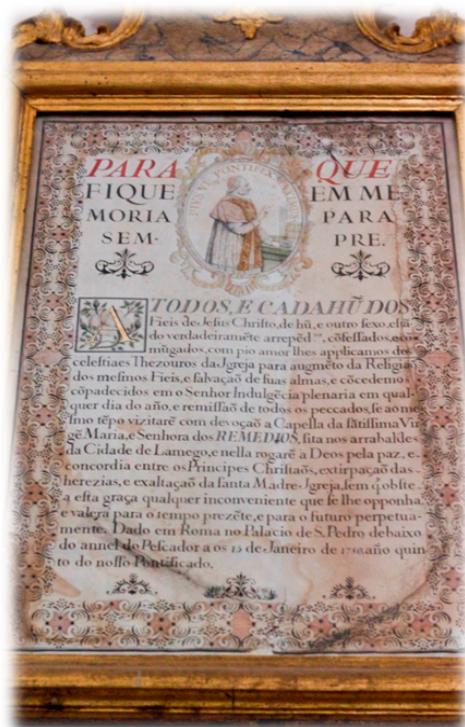 PARA QUE
FIQUE EM ME
MORIA PARA
SEM- PRE.
PIUS VI PONTIFEX MAXIMUS
A TODOS, E CADAHŨ DOS
Fieis de Jesus Chriſto, de hũ, e outro ſexo, eſtã
do verdadeiramẽte arrepẽd.ᵒˢ, cõfeſſados, e co
mũgados, com pio amor lhes applicamos dos
celeſtiaes Thezouros da Jgreja para augmẽto da Religiã
dos meſmos Fieis, e ſalvaçaõ de ſuas almas, e cõcedemos
cõpadecidos em o Senhor Indulgẽcia plenaria em qual
quer dia do año, e remiſſaõ de todos os peccados, ſe ao me
ſmo tẽpo viſitarẽ com devoçaõ a Capella da ſãtiſſima Vir
gẽ Maria, e Senhora dos REMEDIOS, ſita nos arrabaldes
da Cidade de Lamego, e nella rogarẽ à Deos pela paz, e
concordia entre os Principes Chriſtaõs, extirpaçaõ das
herezias, e exaltaçaõ da ſanta Madre Jgreja, ſem q̃ obſte
a eſta graça qualquer inconveniente que ſe lhe opponha,
e valerá para o tempo prezẽte, e para o futuro perpetua-
mente. Dado em Roma no Palacio de S. Pedro debaixo
do annel do Peſcador a os 15 de Janeiro de 1780. año quin
to do noſſo Pontificado.